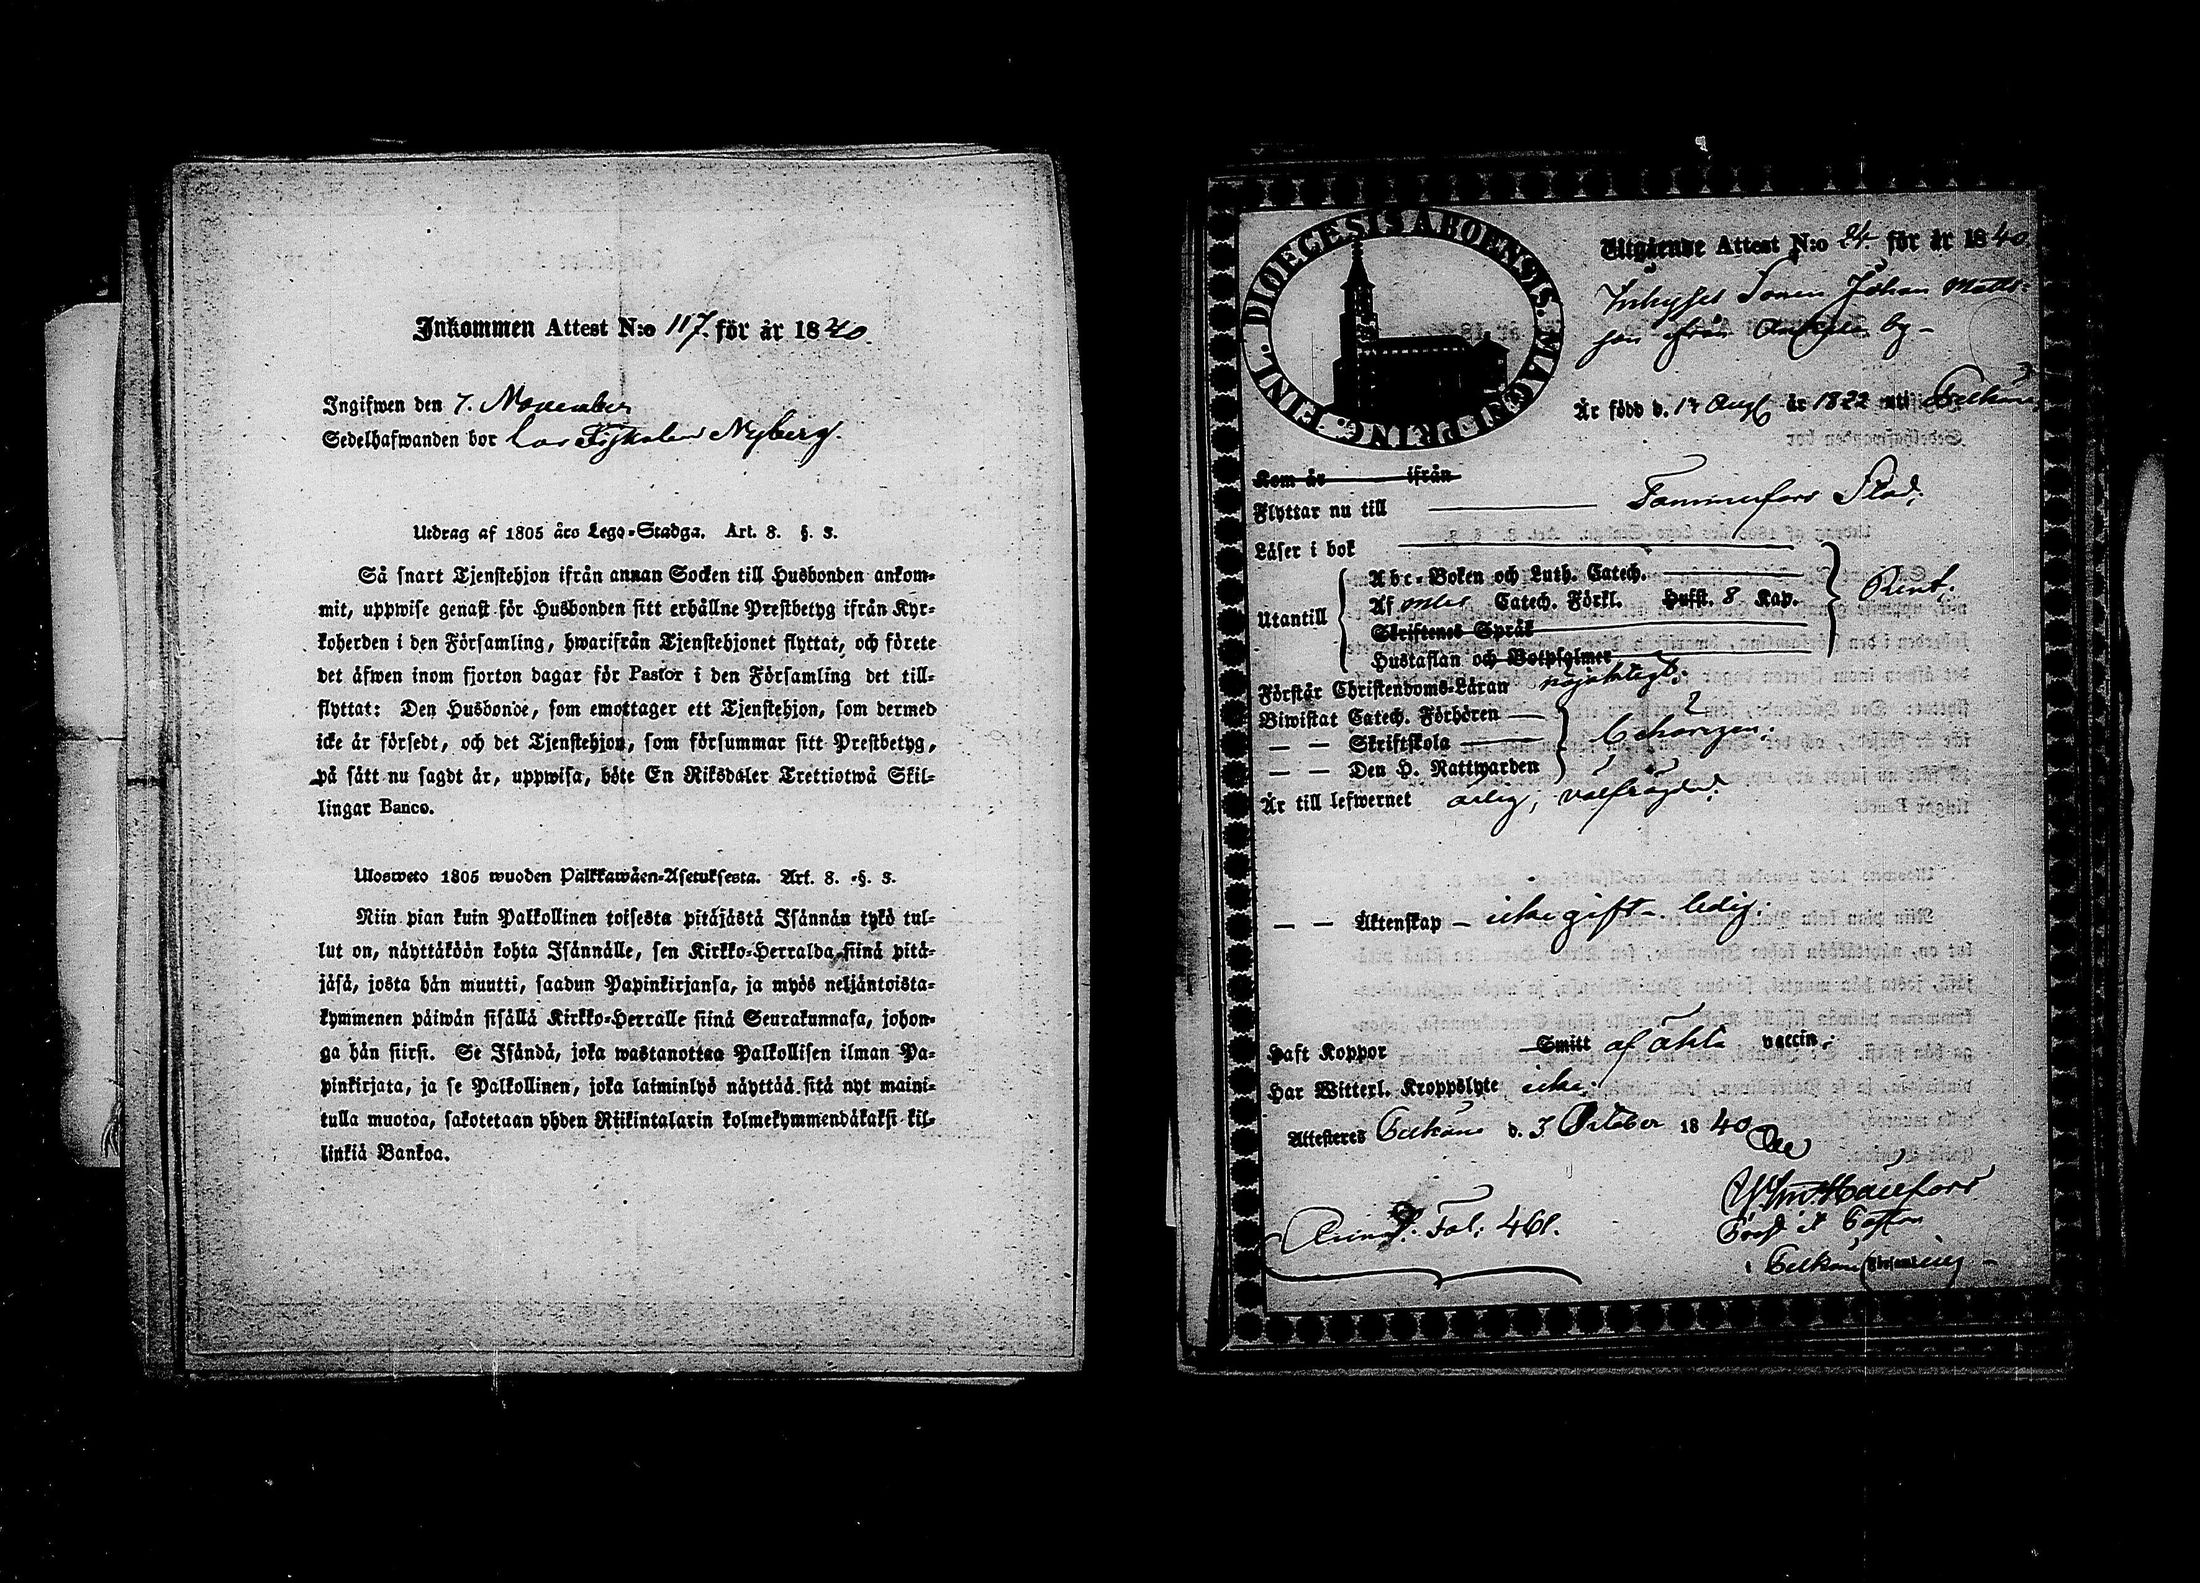 Inkommen Attest N:o 117. för år 1840.
Ingifwen den 7. November
Sedelhafwanden bor hos Fiskalen Nyberg.
Utdrag af 1805 års Lego-Stadga. Art. 8. §. 3.
Så snart Tjenstehjon ifrån annan Socken till Husbonden ankom-
mit, uppwise genast för Husbonden sitt erhållne Prestbetyg ifrån Kyr-
koherden i den Församling, hwarifrån Tjenstehjonet flyttat, och förete
det äfwen inom fjorton dagar för Pastor i den Församling det till-
flyttat: Den Husbonde, som emottager ett Tjenstehjon, som dermed
icke är försedt, och det Tjenstehjon, som försummar sitt Prestbetyg,
på sätt nu sagdt är, uppwisa, böte En Riksdaler Trettiotwå Skil-
lingar Banco.
Ulosweto 1805 wuoden Palkkawäen-Asetuksesta. Art. 8. §. 3.
Niin pian kuin Palkollinen toisesta pitäjästä Isännän tykö tul-
lut on, näyttäköön kohta Isännälle, sen Kirkko-Herralda siinä pitä-
jäsä, josta hän muutti, saadun Papinkirjansa, ja myös neljäntoista-
kymmenen päiwän sisällä Kirkko-Herralle siinä Seurakunnasa, johon-
ga hän siirsi. Se Isändä, joka wastanottaa Palkollisen ilman Pa-
pinkirjata, ja se Palkollinen, joka laiminlyö näyttää sitä nyt maini-
tulla muotoa, sakotetaan yhden Riikintalarin kolmekymmendäkaksi kil-
linkiä Bankoa.
DIOECESIS ABOENSIS. MAGNI PRINC. FINL.
Utgående Attest N:o 24 för år 1840
Inhyses Sonen Johan Matts-
son från by-
Är född d. 17 Aug år 1822 uti Pelkäne
Kom år ifrån
Flyttar nu till Tammerfors Stad;
Läser i bok
Utantill
Abc-Boken och Luth. Catech.
Af Catech. Förkl. Husst. 8 Kap.
Skriftenes Språk
Hustaflan och Botpsalmer
Rent;
Förstår Christendoms-Läran nöjaktigt;
Biwistat Catech. Förhören
— — Skriftskola
— — Den H. Nattwarden
behörigen;
Är till lefwernet ärlig, välfrägdad;
— — Äktenskap icke gift - ledig;
Haft Koppor Smitt af äkta vaccin;
Har Witterl. Kroppslyte icke;
Attesteres Pelkäne d. 3 October 1840
Fol: 461.
Prost & Pastor
i Pelkäne Församling